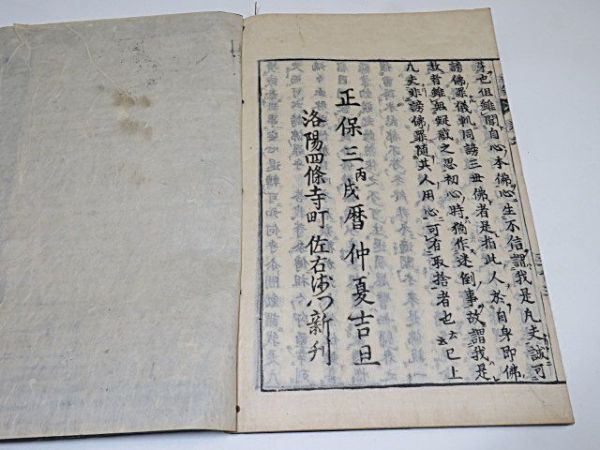 身也但雖聞自心本佛心生不信謂我是凡夫誠可
謗佛罪儀軌同謗三世佛者是指此人於自身即佛
故者雖無疑惑之思初心時猶作迷倒事故謂我是
凡夫非謗佛罪隨其人用心可有取捨者也云云已上
正保三丙戌暦仲夏吉旦
洛陽四條寺町 佐右衛門新刊